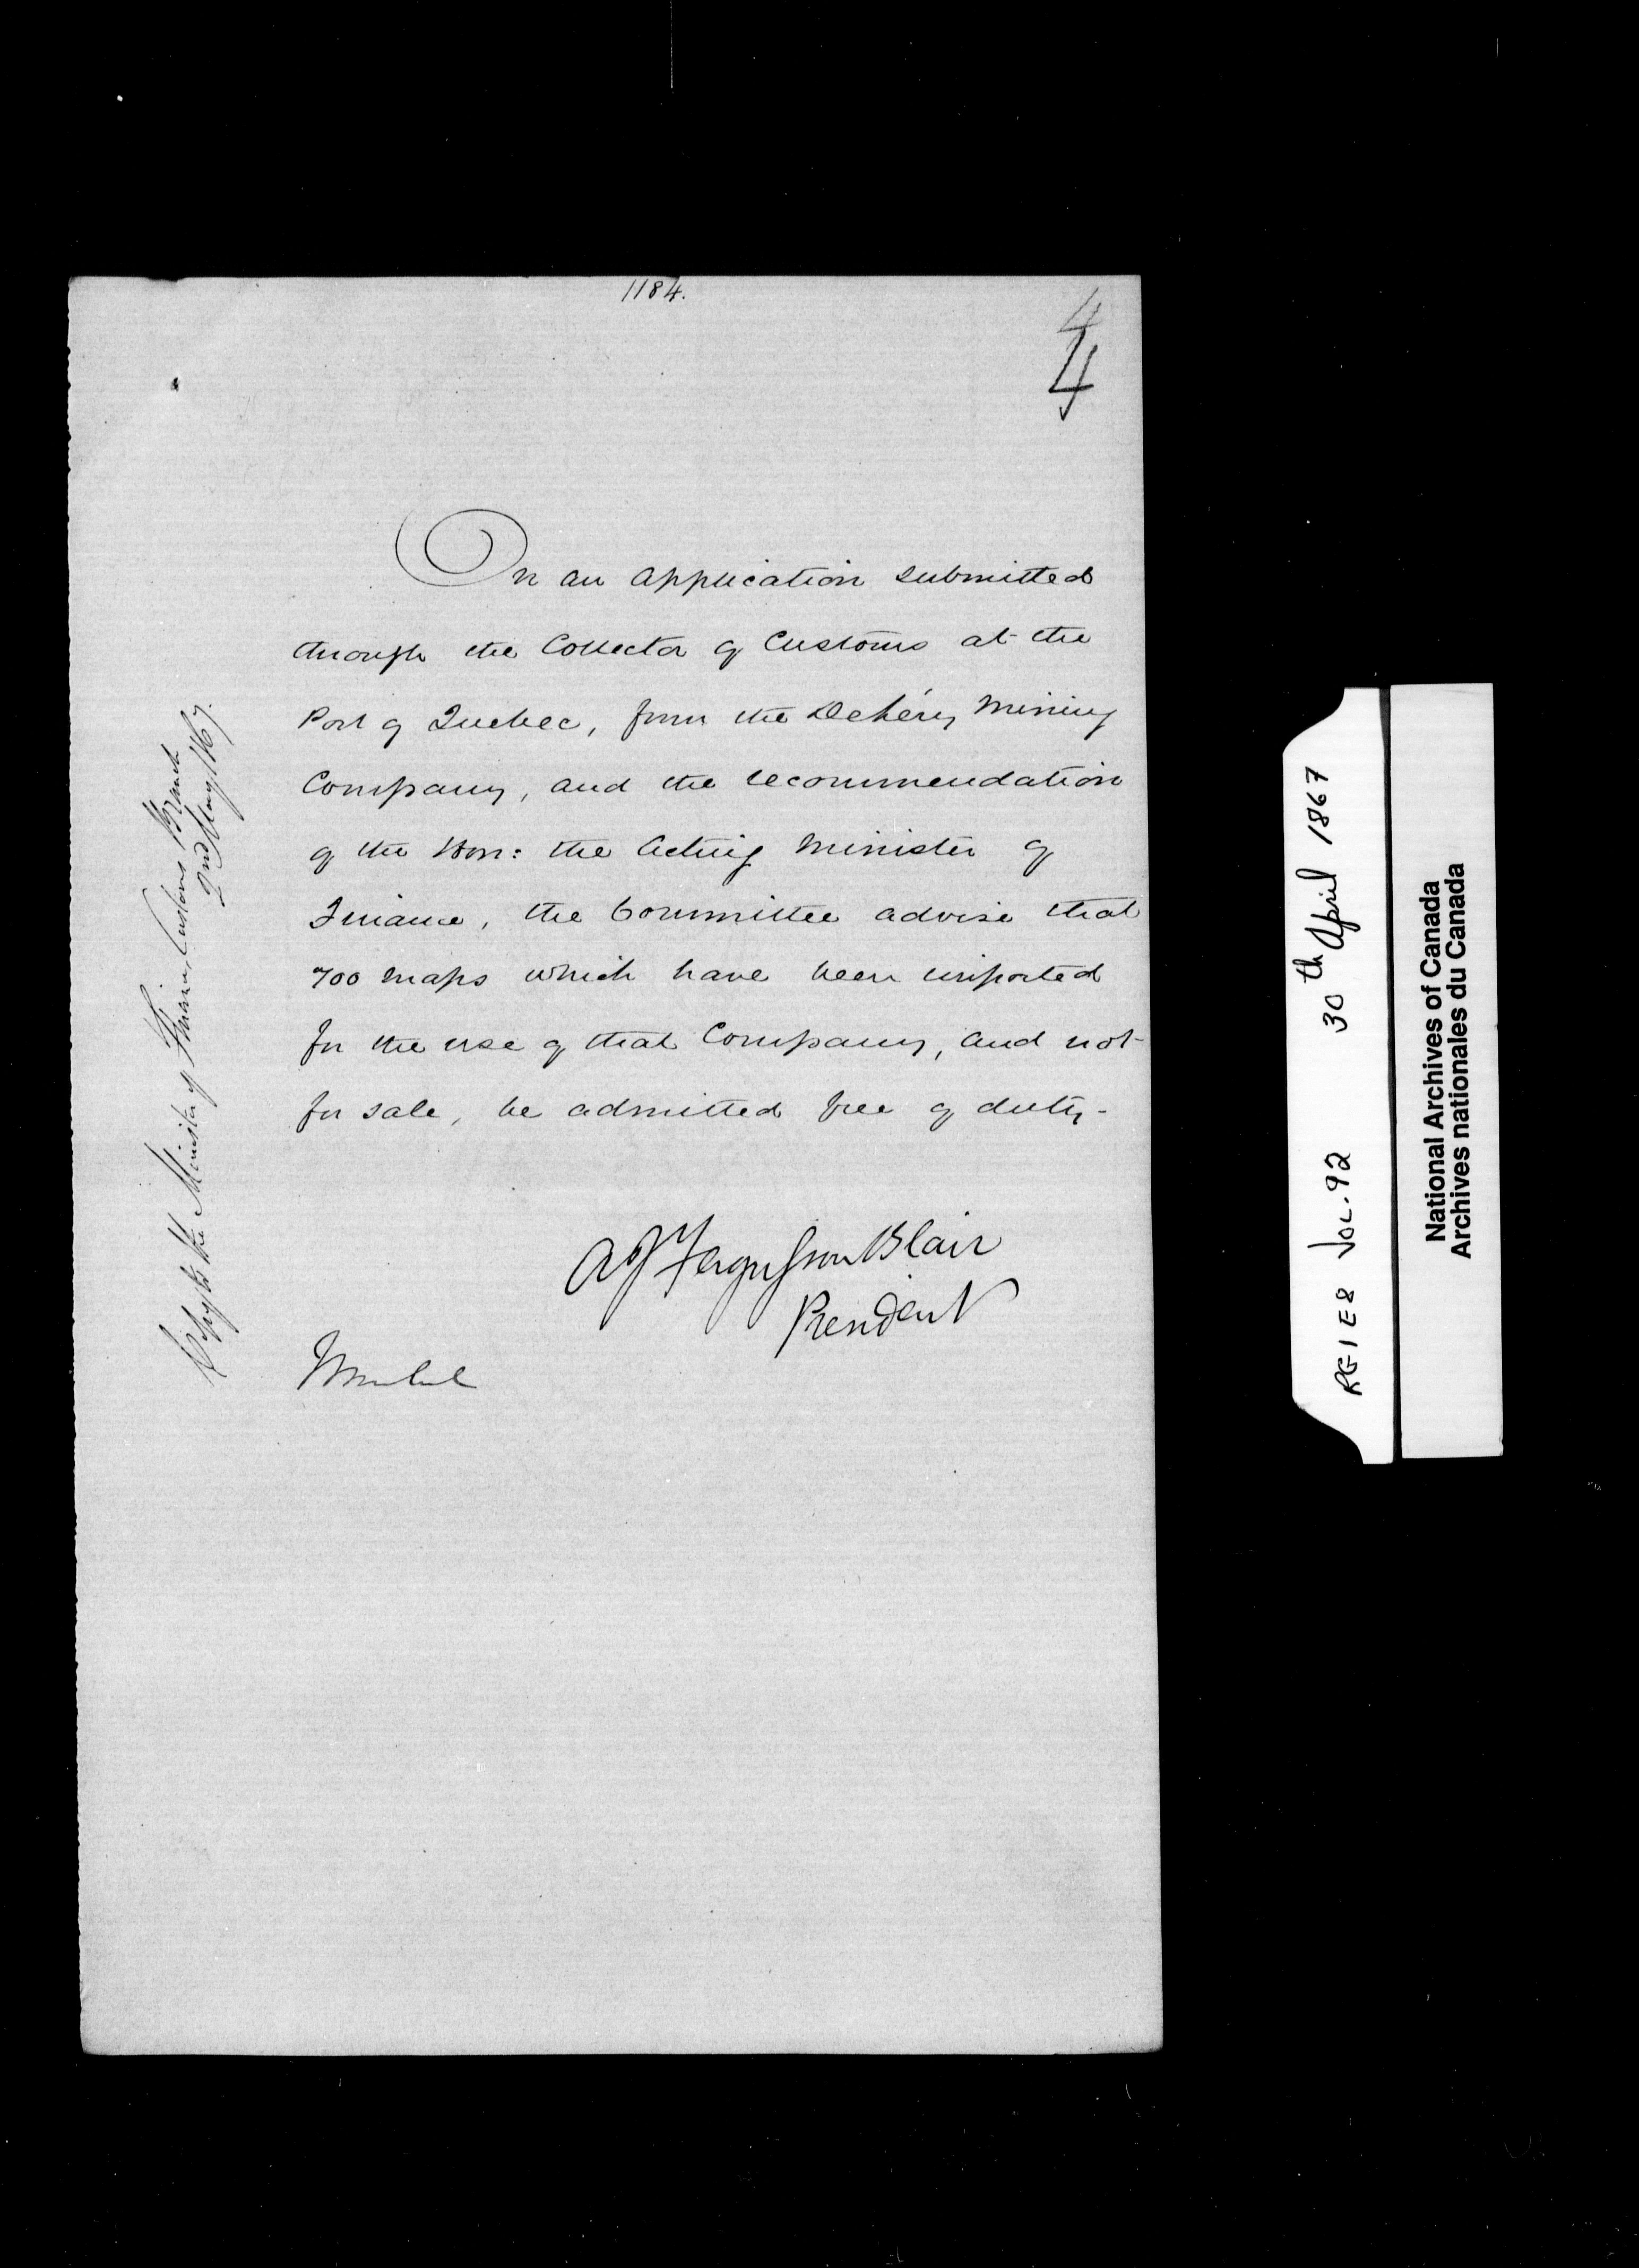 1184.
4
4
On an application submitted
through the Collector of Customs at the
Port of Quebec, from the DeLéry Mining
Company, and the recommendation
of the Hon: the Acting Minister of
Finance, the Committee advise that
700 maps which have been imported
for the use of that Company, and not
for sale, be admitted free of duty-
A J Fergusson Blair
President
Monck
Copy to the Minister of Finance, Customs Branch
2nd May/67.
RG1E8 VOL.92 30th April 1867
National Archives of Canada
Archives nationales du Canada